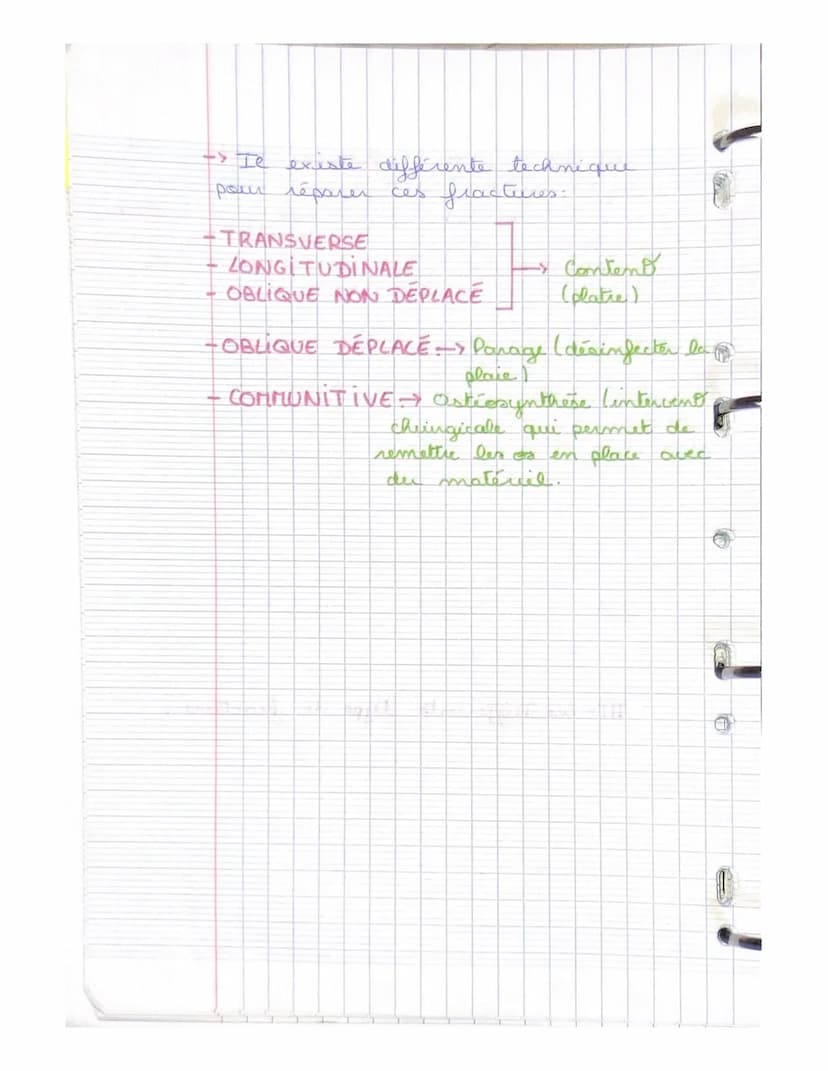 -> Il existe différente technique
pour réparer ces fractures:
- TRANSVERSE
- LONGITUDINALE -> Content°
- OBLIQUE NON DÉPLACÉ (platre)
- OBLIQUE DÉPLACÉ -> Parage (désinfecter la
plaie)
- COMMUNITIVE -> Ostéosynthèse (intervent°
chirurgicale qui permet de
remettre les os en place avec
du matériel.